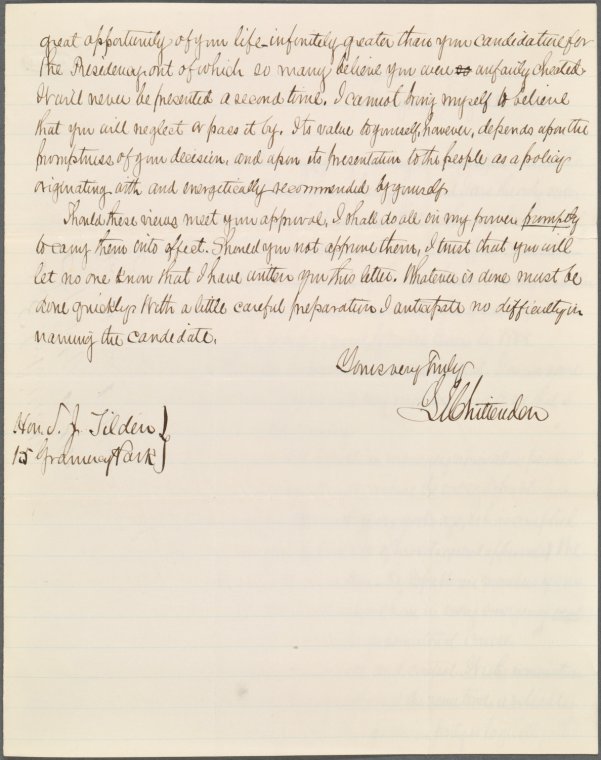 great opportunity of your life—infinitely greater than your candidature for
the Presidency out of which so many believe you were so unfairly cheated
It will never be presented a second time. I cannot bring myself to believe
that you will neglect or pass it by. Its value to yourself, however, depends upon the
promptness of your decision, and upon its presentation to the people as a policy
originating with and energetically recommended by yourself
Should these views meet your approval, I shall do all in my power promptly
to carry them into effect. Should you not approve them, I trust that you will
let no one know that I have written you this letter. Whatever is done must be
done quickly. With a little careful preparation I anticipate no difficulty in
naming the candidate.
Yours very truly
L E Chittenden
Hon. S. J. Tilden
15 Gramercy Park